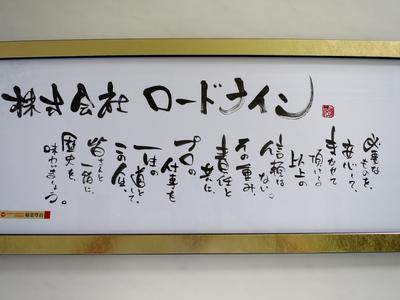 株式会社 ロードナイン
必要な
ものを、
安心して、
まかせて
頂ける
以上の
信頼は
ない。
その重み、
責任と
共に、
プロの
仕事を
道として、
皆さんと
一緒に、
歴史を、
味わいましょう。